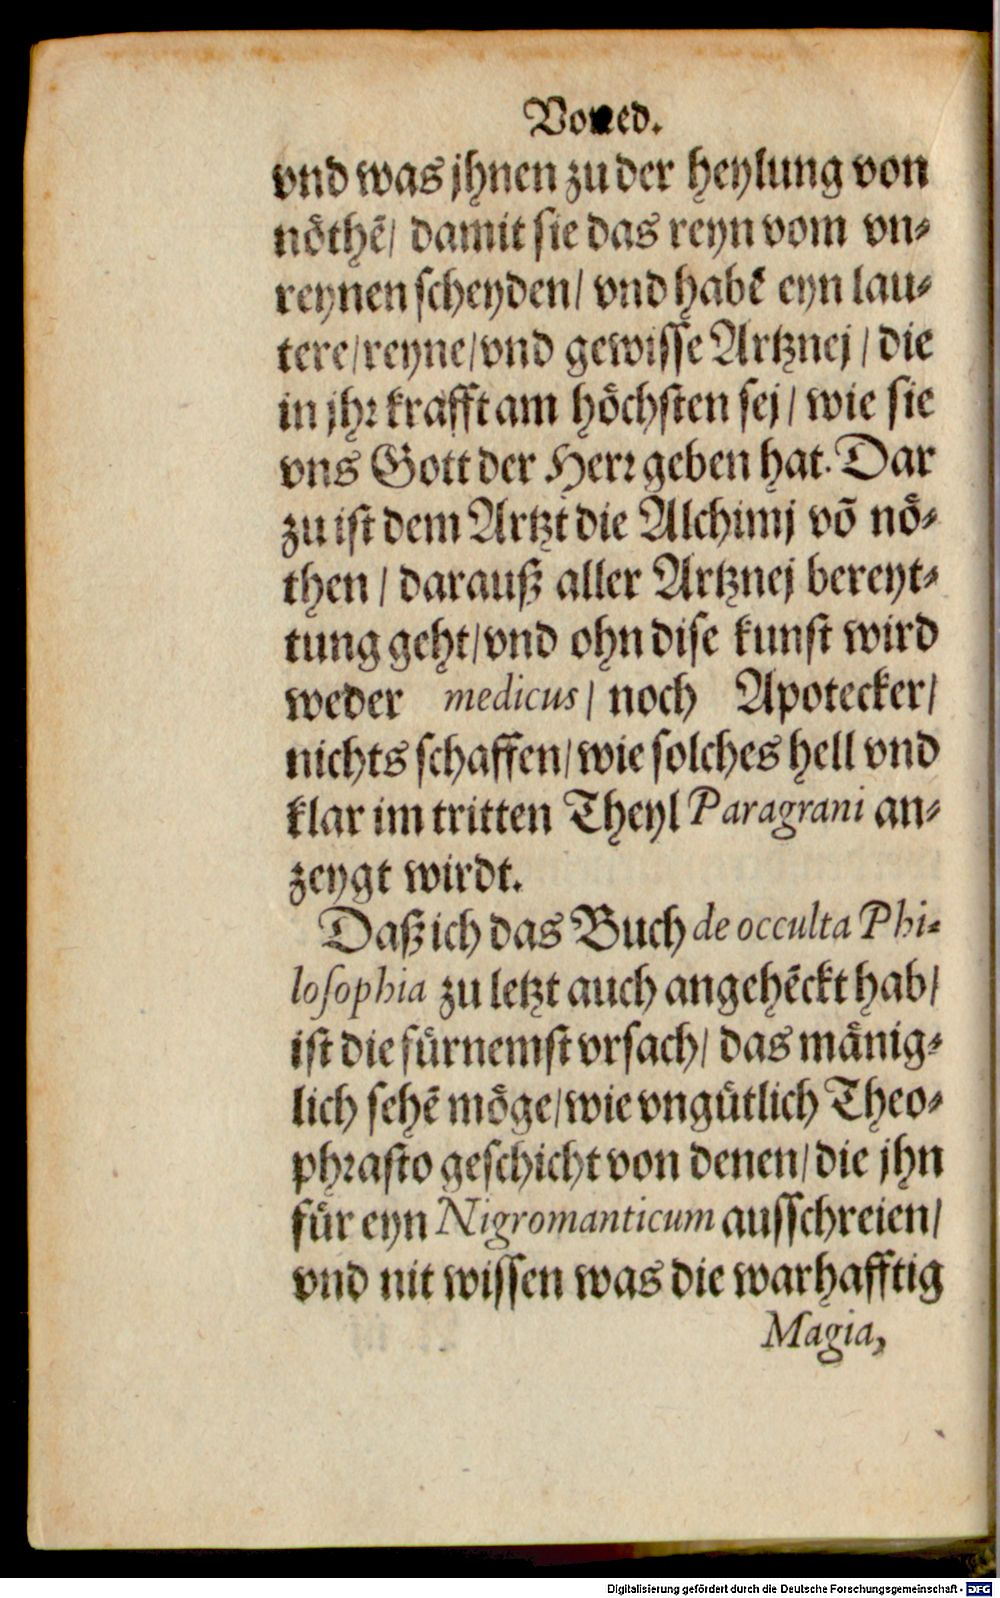 Vorred.
vnd was jhnen zu der heylung von
nöthẽ/ damit sie das reyn vom vn⸗
reynen scheyden/ vnd habẽ eyn lau⸗
tere/reyne/vnd gewisse Artznej/ die
in jhr krafft am höchsten sej/ wie sie
vns Gott der Herr geben hat. Dar
zu ist dem Artzt die Alchimj võ nö⸗
then/ darauß aller Artznej bereyt⸗
tung geht/vnd ohn dise kunst wird
weder medicus/ noch Apotecker/
nichts schaffen/wie solches hell vnd
klar im tritten Theyl Paragrani an⸗
zeygt wirdt.
Daß ich das Buch de occulta Phi⸗
losophia zu letzt auch angehẽckt hab/
ist die fürnemst vrsach/ das mänig⸗
lich sehẽ möge/wie vngütlich Theo⸗
phrasto geschicht von denen/die jhn
für eyn Nigromanticum ausschreien/
vnd nit wissen was die warhafftig
Magia,
Digitalisierung gefördert durch die Deutsche Forschungsgemeinschaft - DFG